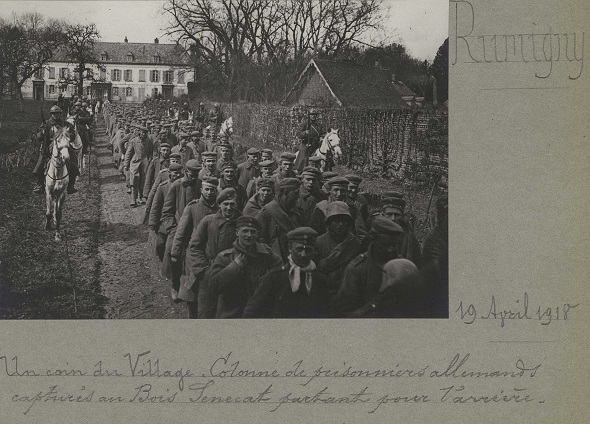 Rumigny
19 Avril 1918
Un coin du Village. Colonne de prisonniers allemands
capturés au Bois Senecat partant pour l'arrière.